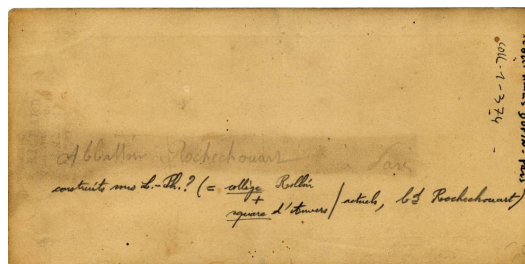 Abbattoir Rochechouart à Paris
construits sous L.-Ph.? (= collège Rollin
+
square d'Anvers / actuels, bd Rochechouart)
COLL-1-374